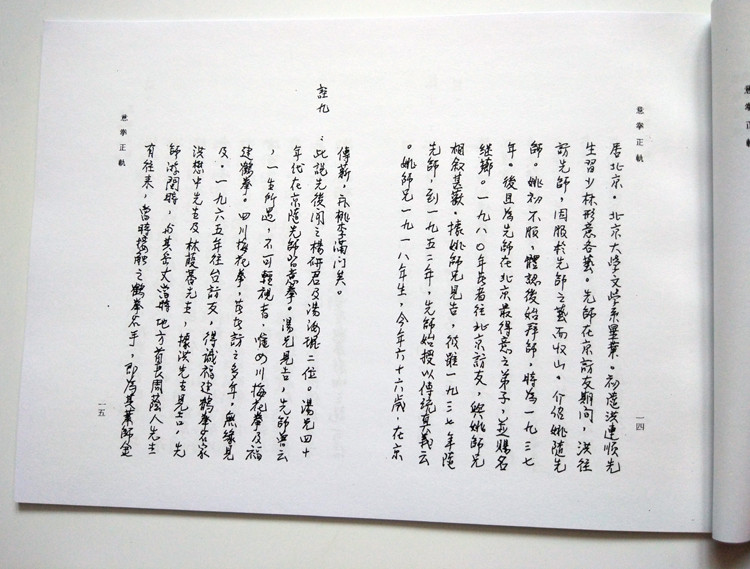 意拳正軌
居北京。北京大學文學系畢業。初隨洪連順先
生習少林形意各藝。先師在京訪友期間，洪往
訪先師，因服於先師之藝而收山。介紹姚隨先
師。姚初不服，體認後始拜師，時為一九三七
年。後且為先師在北京最得意之弟子，並賜名
繼薌。一九八〇年筆者往北京訪友，與姚師兄
相敘甚歡。據姚師兄見告，彼雖一九三七年隨
先師，到一九五二年。先師始授以傳統真義云
。姚師兄一九一八年生，今年六十六歲。在京
一四
意拳正軌
傳薪，亦桃李滿門矣。
註九：此說先後聞之楊研君及湯海琨二位。湯兄四十
年代在京隨先師習意拳。湯兄見告，先師嘗云
，一生所遇，不可輕視者，惟四川梅花拳及福
建鶴拳。四川梅花拳，筆者訪之多年，無緣見
及。一九六五年往台訪友，得識福建鶴拳名家
洪懋中先生及林葭蕃先生，據洪先生見告，先
師游閩時，與其岳丈當時地方首長周蔭人先生
有往來，當時接觸之鶴拳名手，即為其業師金
一五
意拳正軌